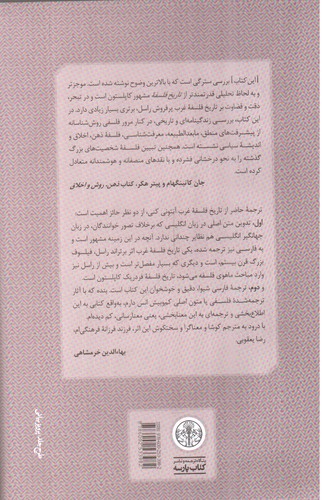 [این کتاب] بررسی سترگی است که با بالاترین وضوح نوشته شده است. موجزتر
و به لحاظ تحلیلی قدرتمندتر از تاریخ فلسفهٔ مشهور کاپلستون است و در تبحر،
دقت و قضاوت بر تاریخ فلسفهٔ غرب پرفروش راسل، برتری بسیار زیادی دارد. در
این کتاب، بررسی زندگینامه‌ای و تاریخی، در کنار مرور فلسفی روش‌شناسانه
از پیشرفت‌های منطق، مابعدالطبیعه، معرفت‌شناسی، فلسفهٔ ذهن، اخلاق و
اندیشهٔ سیاسی نشسته است. همچنین تبیین فلسفهٔ شخصیت‌های بزرگ
گذشته را به نحو درخشانی فشرده و با نقدهای منصفانه و هوشمندانه متعادل
کرده است.
جان کاتینگهام و پیتر هکر، کتاب ذهن، روش و اخلاق
ترجمهٔ حاضر از تاریخ فلسفهٔ غرب آنتونی کنی، از دو نظر حائز اهمیت است.
اول، تدوین متن اصلی در زبان انگلیسی که برخلاف تصور خوانندگان، در زبان
جهانگیر انگلیسی هم نظایر چندانی ندارد. آنچه در این زمینه مشهور است و
به فارسی نیز ترجمه شده، یکی تاریخ فلسفهٔ غرب اثر برتراند راسل، فیلسوف
بزرگ قرن بیستم، است و دیگری که بسیار مفصل‌تر است و بیش از راسل نیز
وارد مباحث ماهوی فلسفه می‌شود، تاریخ فلسفهٔ فردریک کاپلستون است.
و دوم، ترجمهٔ فارسی شیوا، دقیق و خوشخوان این کتاب است. بنده که با آثار
ترجمه‌شدهٔ فلسفی یا متون اصلی کم‌وبیش انس دارم، به‌واقع کتابی به این
اطلاع‌بخشی و ترجمه‌ای به این معنابخشی، یعنی معنارسانی، کم دیده‌ام.
با درود به مترجم کوشا و معناگرا و سختکوش این اثر، فرزند فرزانهٔ فرهنگی‌ام،
رضا یعقوبی.
بهاءالدین خرمشاهی
کتاب پارسه